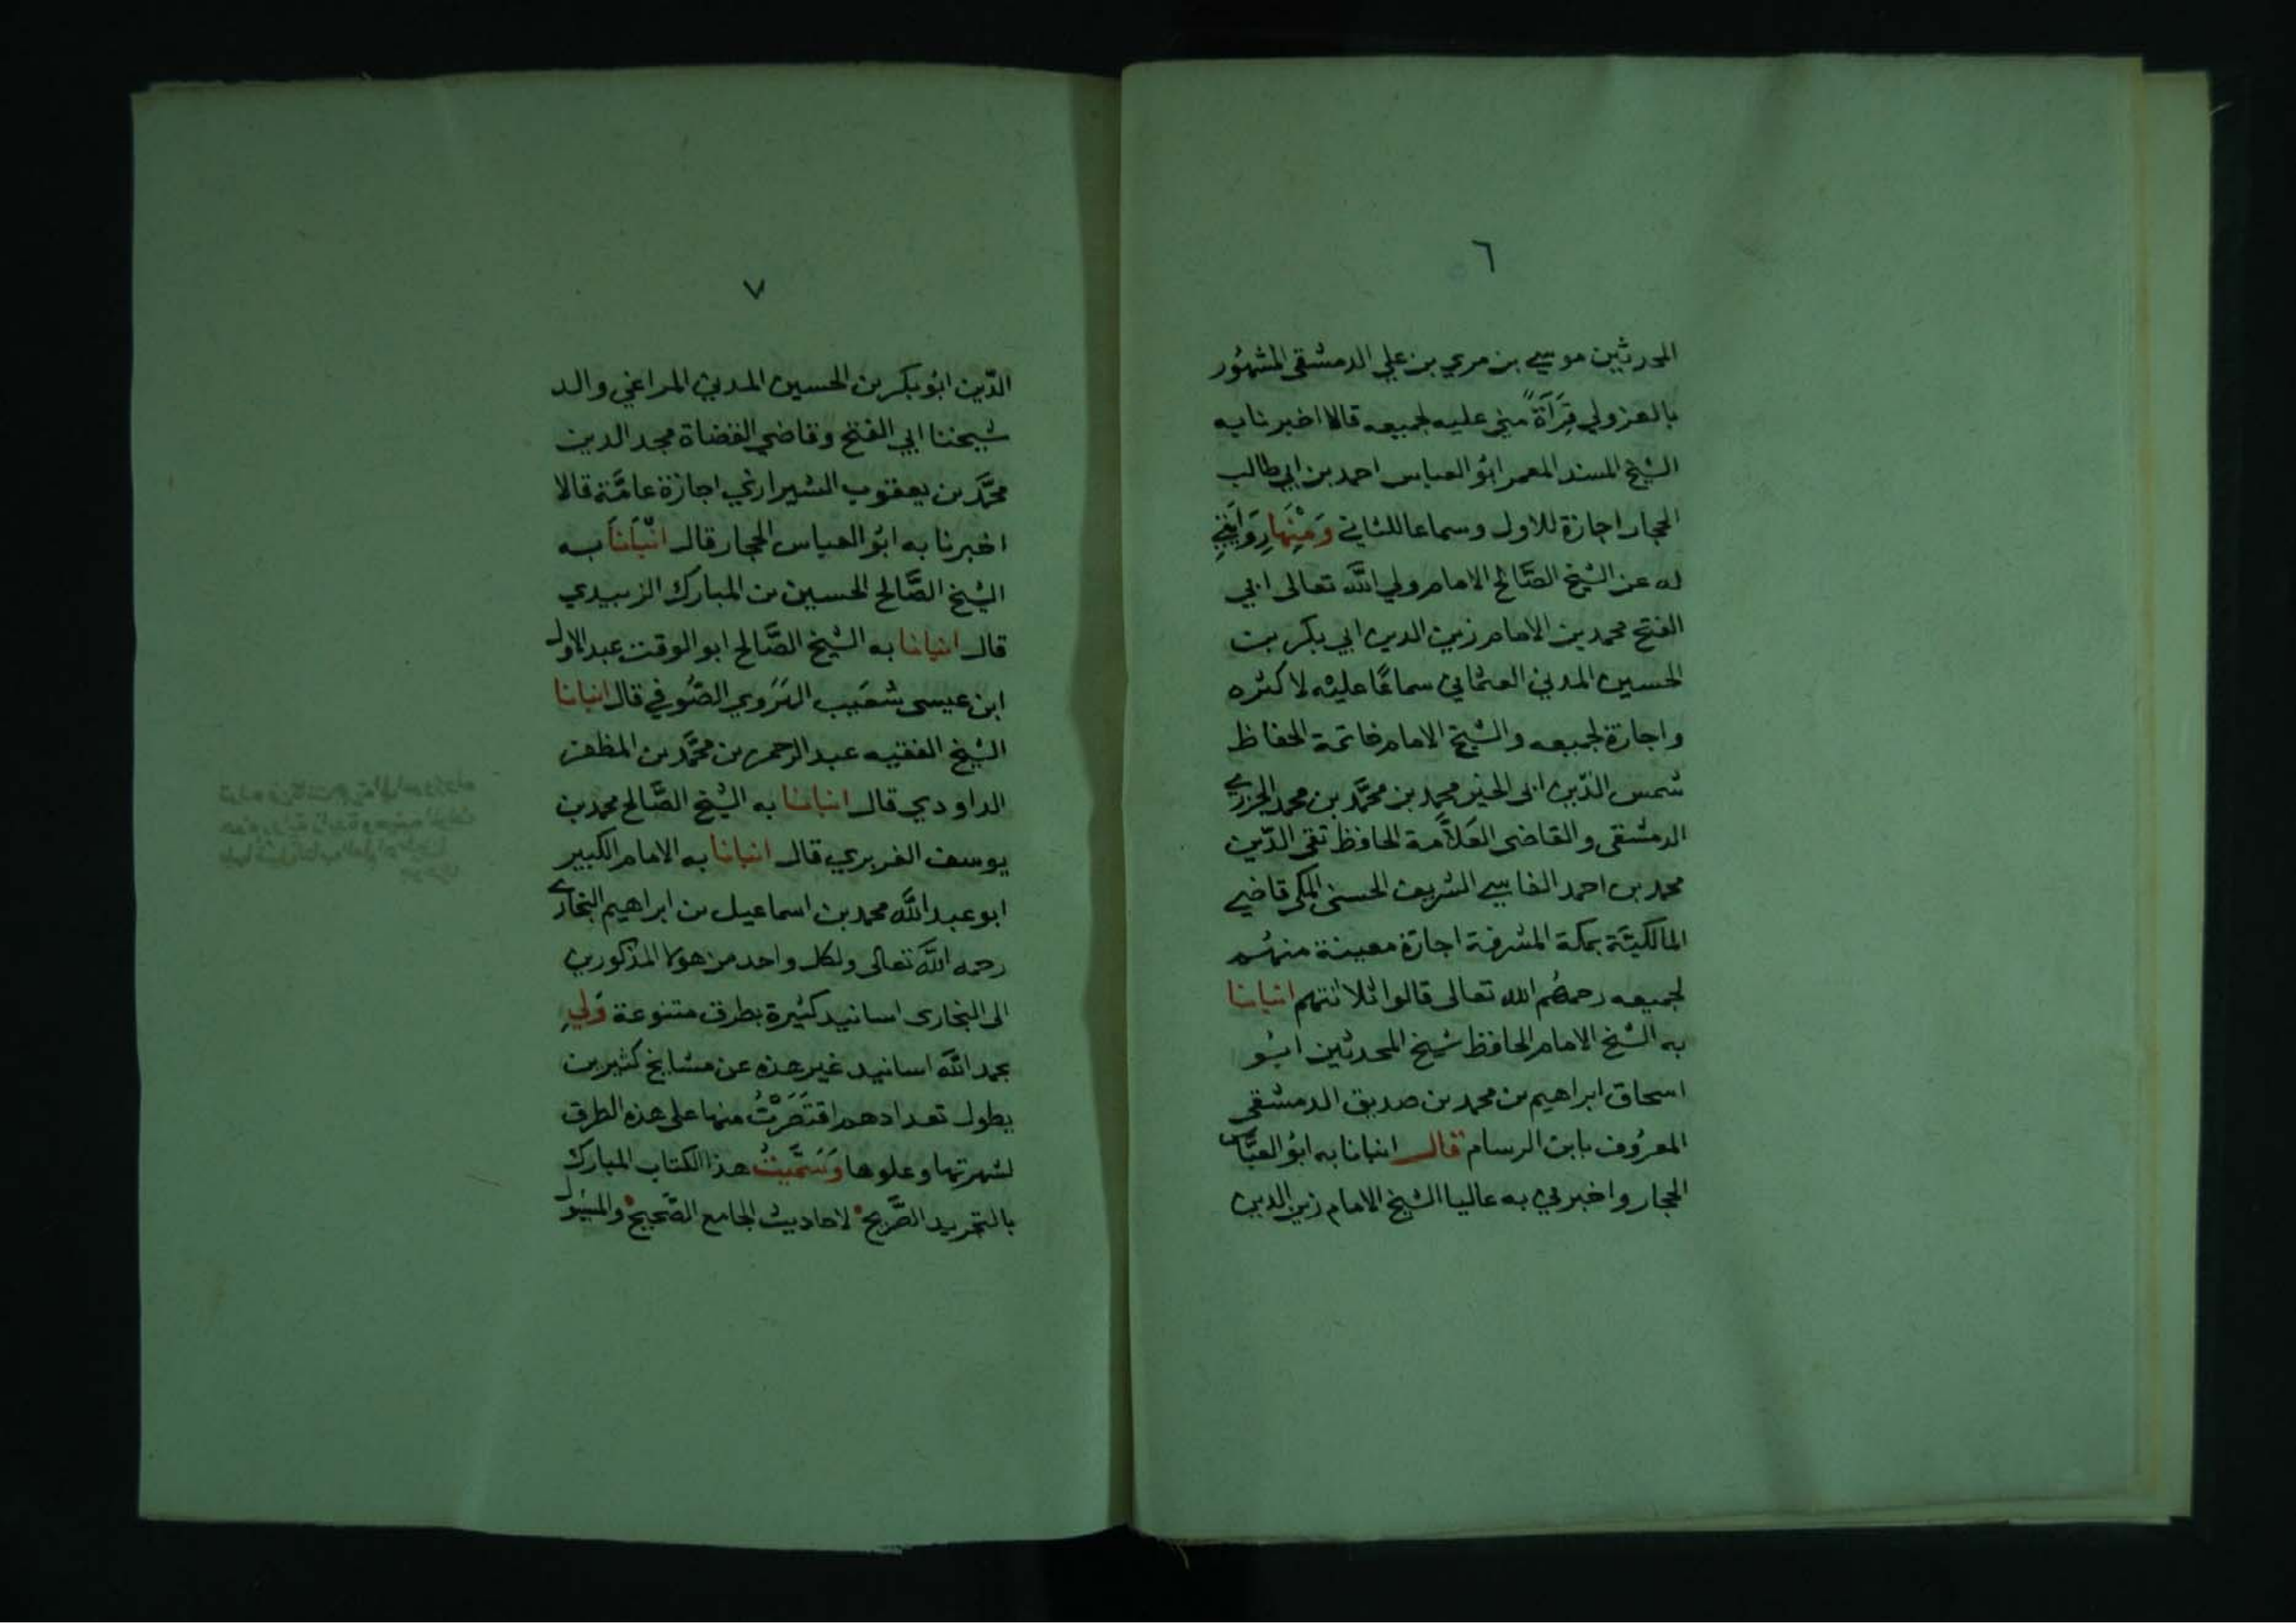 ٦
المحدثين موسي بن مري بن علي الدمشقي المشهور
بالغزولي قرآة مني عليه لجميعه قالا اخبرنا به
الشيخ المسند المعمر ابو العباس احمد بن ابي طالب
الحجار اجازة للاول وسماعا للثاني ومنها روايتي
له عن الشيخ الصالح الامام ولي الله تعالى ابي
الفتح محمد بن الامام زين الدين ابي بكر بن
الحسين المدني العثماني سماعا عليه لاكثره
واجازة لجميعه والشيخ الامام خاتمة الحفاظ
شمس الدين ابي الخير محمد بن محمد بن محمد الجزري
الدمشقي والقاضي العلامة الحافظ تقي الدين
محمد بن احمد الفاسي الشريف الحسني المكي قاضي
المالكية بمكة المشرفة اجازة معينة منهم
لجميعه رحمهم الله تعالى قالوا ثلاثتهم انبانا
به الشيخ الامام الحافظ شيخ المحدثين ابو
اسحاق ابراهيم بن محمد بن صديق الدمشقي
المعروف بابن الرسام قال انبانا به ابو العباس
الحجار واخبرني به عاليا الشيخ الامام زين الدين
٧
الدين ابو بكر بن الحسين المدني المراغي والد
شيخنا ابي الفتح وقاضي القضاة مجد الدين
محمد بن يعقوب الشيرازي اجازة عامة قالا
اخبرنا به ابو العباس الحجار قال انبانا به
الشيخ الصالح الحسين بن المبارك الزبيدي
قال انبانا به الشيخ الصالح ابو الوقت عبد الاول
ابن عيسى شعيب الهروي الصوفي قال انبانا
الشيخ الفقيه عبد الرحمن بن محمد بن المظفر
الداودي قال انبانا به الشيخ الصالح محمد بن
يوسف الفربري قال انبانا به الامام الكبير
ابو عبد الله محمد بن اسماعيل بن ابراهيم البخاري
رحمه الله تعالى ولكل واحد من هولا المذكورين
الى البخارى اسانيد كثيرة بطرق متنوعة ولي
بحمد الله اسانيد غير هذه عن مشايخ كثيرين
يطول تعدادهم اقتصرت منها على هذه الطرق
لشهرتها وعلوها وسميت هذا الكتاب المبارك
بالتجريد الصريح لاحاديث الجامع الصحيح والمسئول